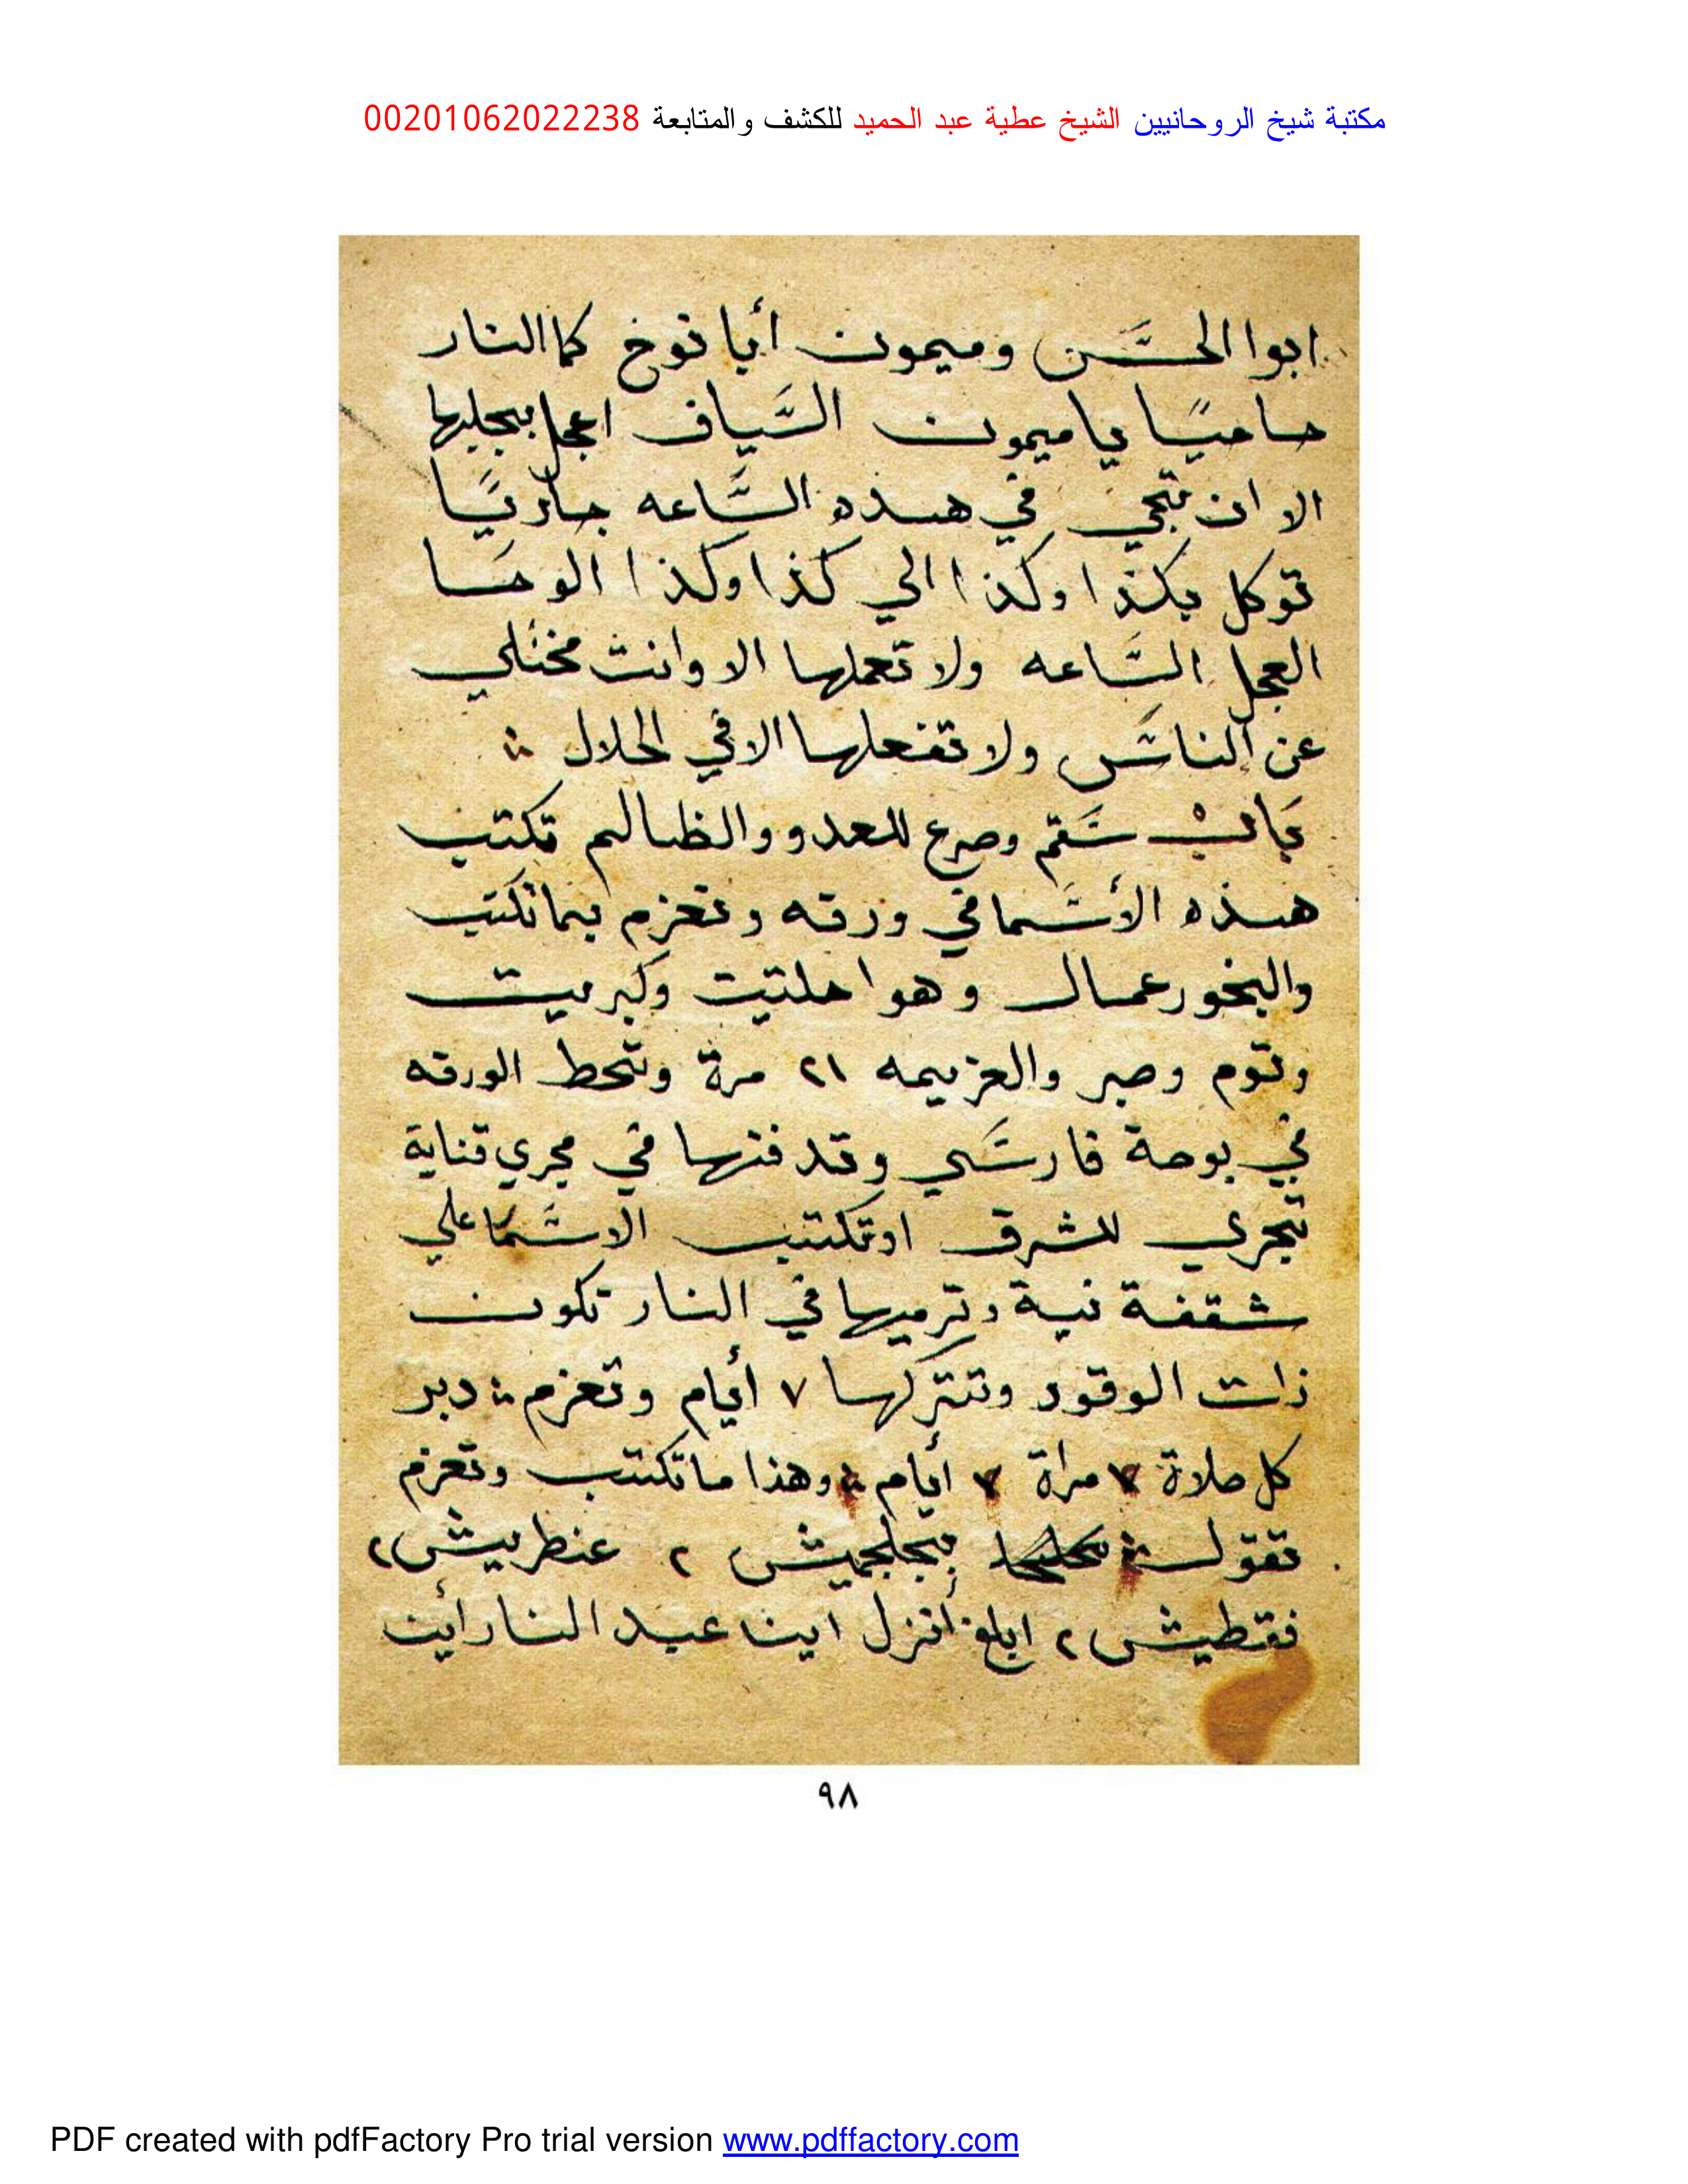 مكتبة شيخ الروحانيين الشيخ عطية عبد الحميد للكشف والمتابعة 00201062022238
ابوا الحسن وميمون أبا نوخ كما النار
حاميًا يا ميمون السياف اعجل بجلبها
الا ان تجي في هذه الساعه جاريًا
توكل بكذا وكذا الي كذا وكذا الوحا
العجل الساعه ولا تعملها الا وانت مختلي
عن الناس ولا تفعلها الا في الحلال
باب سقم وصرع للعدو والظالم تكتب
هذه الأسما في ورقه وتعزم بما تكتب
والبخور عمال وهوا حلتيت وكبريت
وتوم وصبر والعزيمه ٢١ مرة وتحط الورقه
في بوصة فارسي وتدفنها في مجري قناية
تجري للشرق او تكتب الاسما علي
شقفة نية وترميها في النار تكون
ذات الوقود وتتركها ٧ أيام وتعزم دبر
كل صلاة ٧ مراة ٧ أيام وهذا ما تكتب وتعزم
تقول بجلجميش ٢ عنطريش ٢
فقطيش ٢ ابلغ أنزل اين عبد النار أين
٩٨
PDF created with pdfFactory Pro trial version www.pdffactory.com